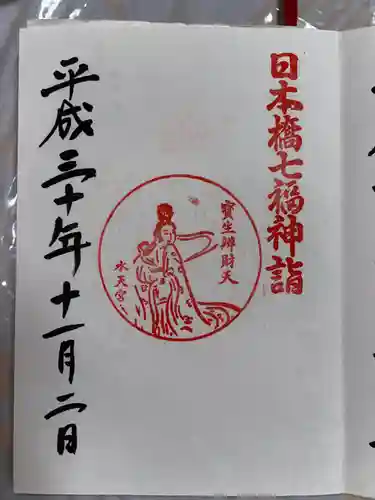 日本橋七福神詣
寶生辨財天
水天宮
平成三十年十一月二日